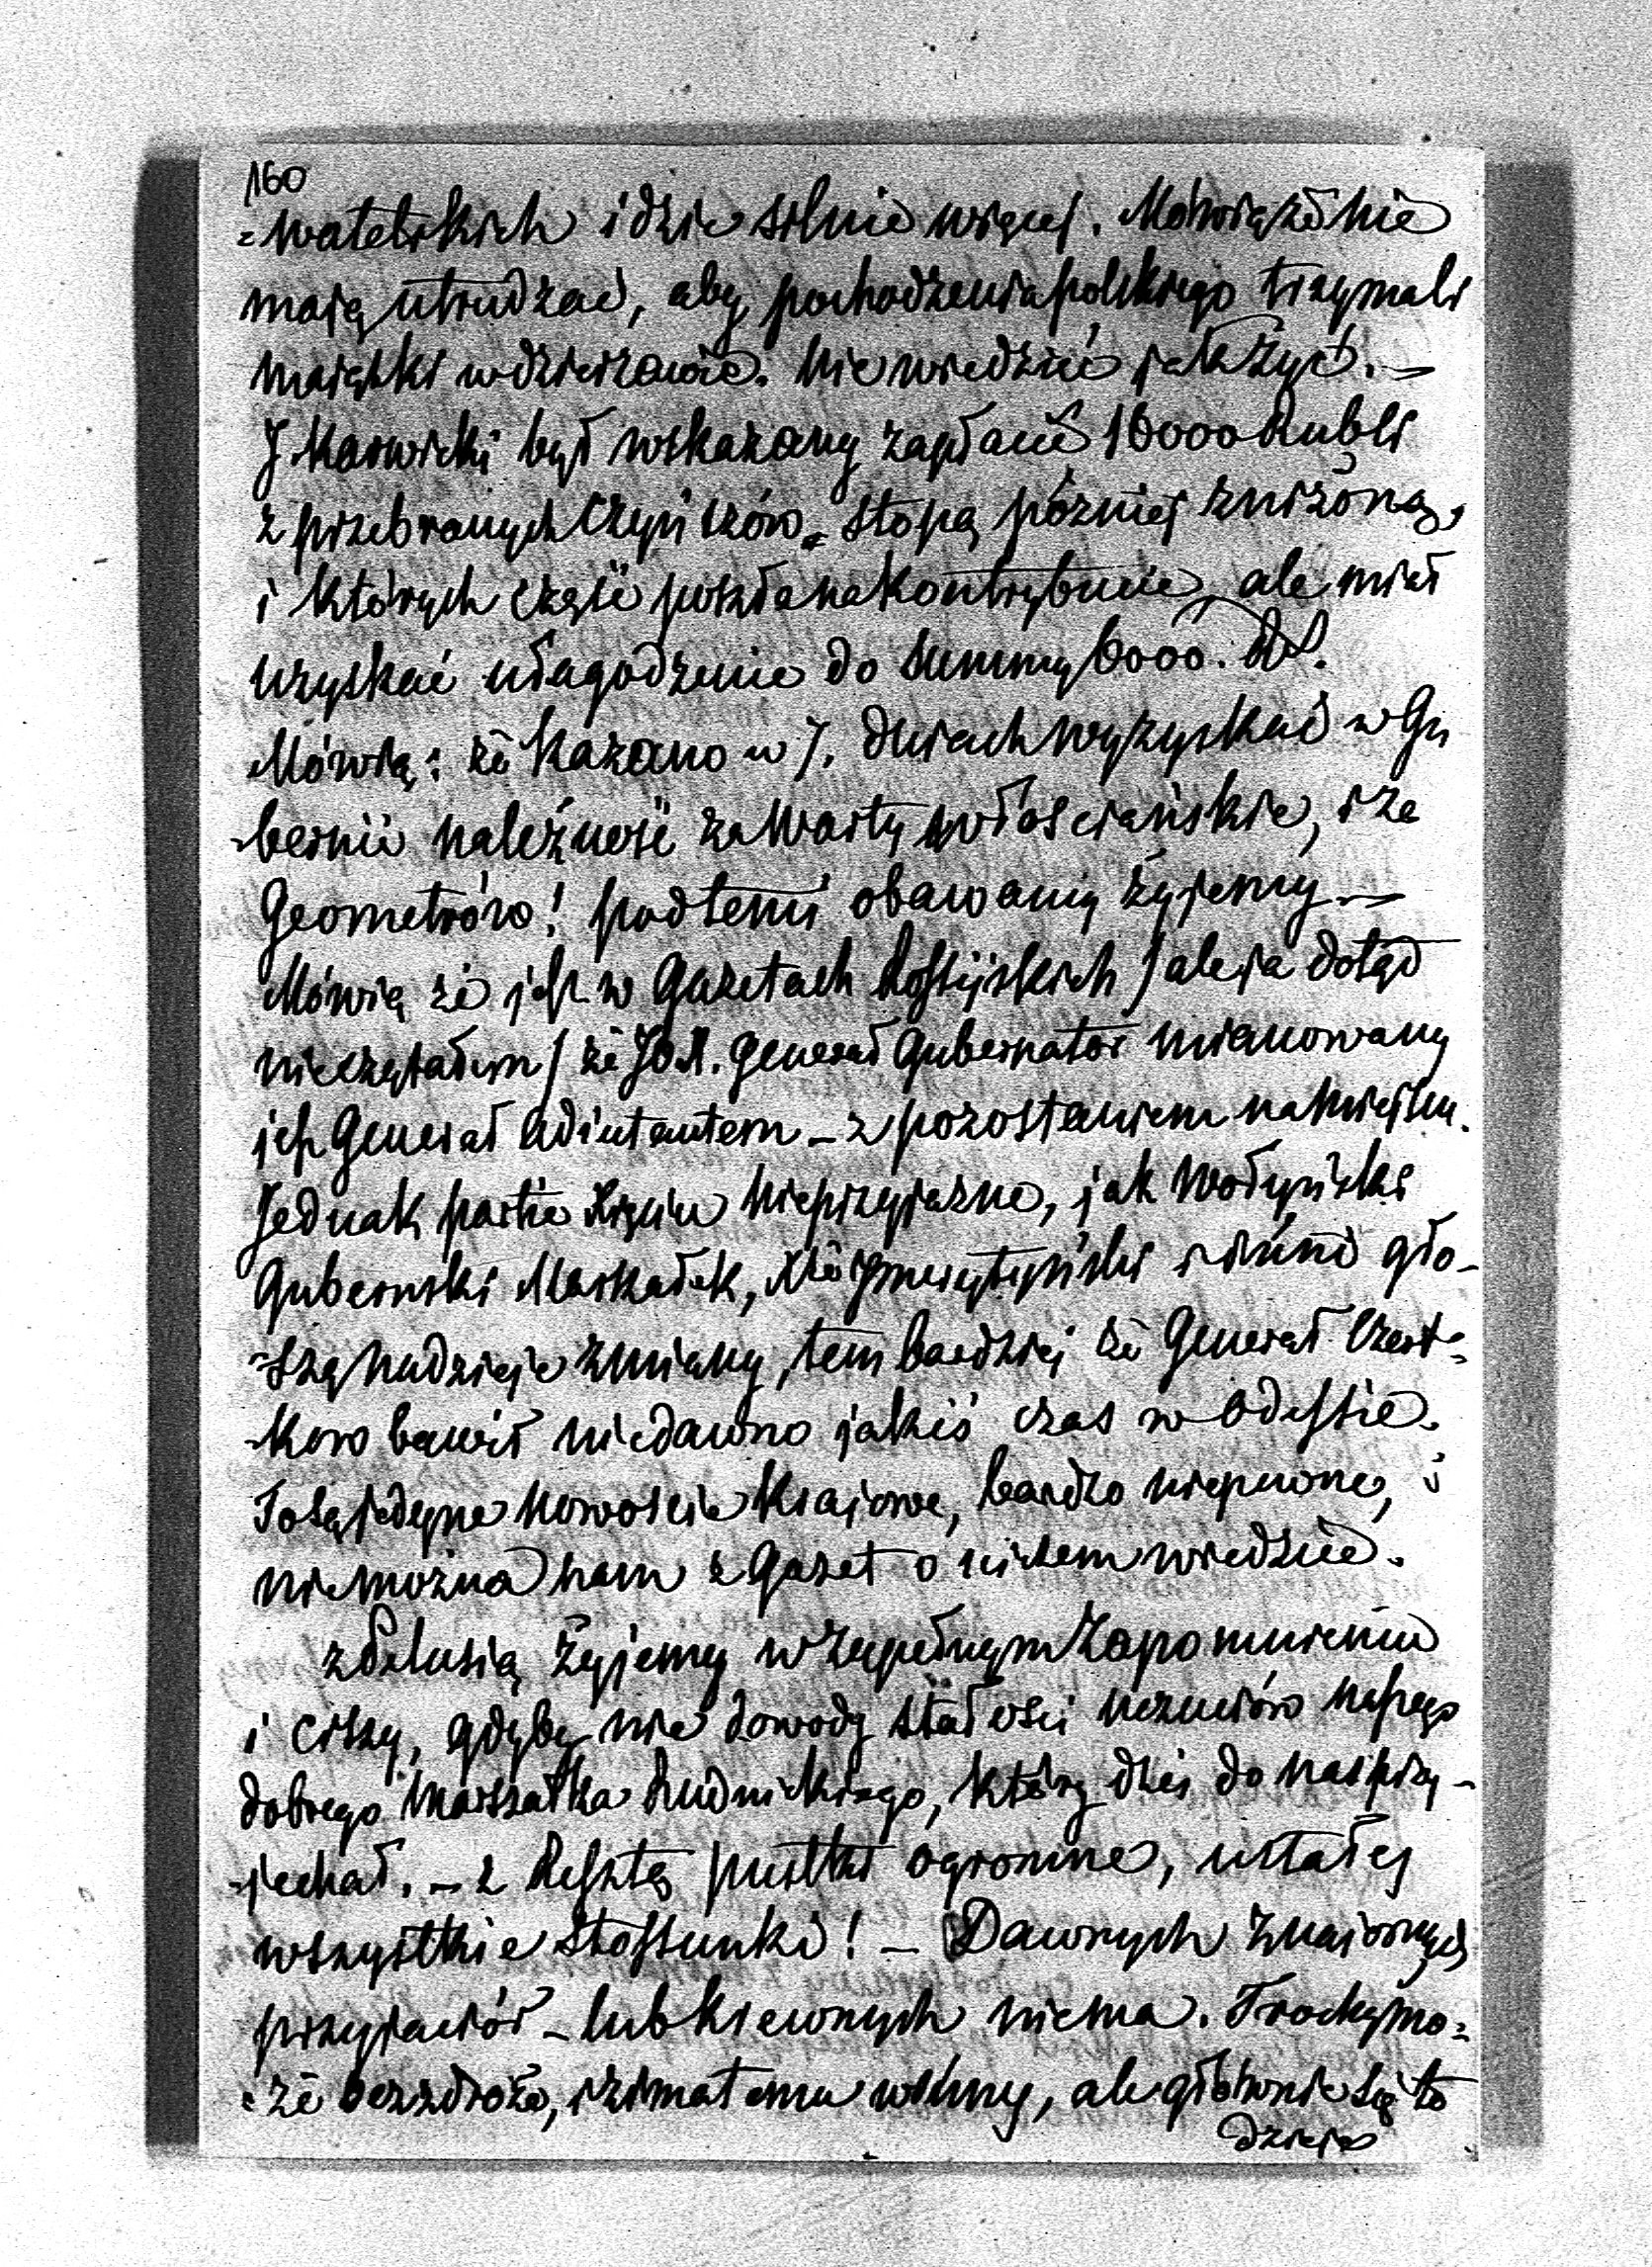 160
=watelskich idzie silnie więcej. Mówią że nie
mają utrudzać, aby pochodzenia polskiego trzymali
majątki w dzierżawie. Nie wiedzieć jak żyć. —
J Karwicki był wskazany zapłacić 10000 Rubli
z przebranych Czynszów = stopą później zniżoną,
i których część poszła na Kontrybucie, ale miał
uzyskać ułagodzenie do Summy 6000.
Mówią: że kazano w 7. dniach wyzyskać w Gu
-bernii należność za warty włościańskie, i za
Geometrów! pod temi obawami żyjemy —
Mówią że jest w Gazetach Rossyjskich / ale ja dotąd
nieczytałem / że JO X. Generał Gubernator mianowany
jest Generał Adiutantem – z pozostaniem na miejscu.
Jednak partie Xięciu nieprzyjazne, jak Wołyński
Gubernski Marszałek, i inni gło-
-szą nadzieje zmiany, tem bardziej że Generał Czert=
-kow bawił niedawno jakiś czas w Odessie.
To są jedyne nowoście krajowe, bardzo niepewne, i
niemożna nam z Gazet o niczem wiedzieć.
z Delusią żyjemy w zupełnym zapomnieniu
i ciszy, gdyby nie dowody stałości uczuciów naszego
dobrego Marszałka Rudnickiego, który dziś do nas przy-
-jechał. – z Resztą pustki ogromne, ustały
wszystkie stossunki! – Dawnych znajomych
przyjaciół – lub krewnych niema. Trochy mo=
=że bezdroże, i zima temu winny, ale głównie się to
dzieje